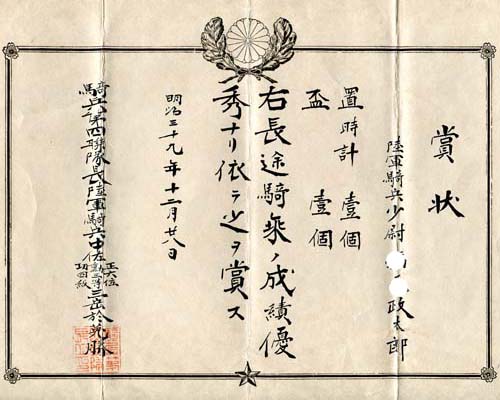 賞状
陸軍騎兵少尉 政太郎
置時計 壹個
盃 壹個
右長途騎乗ノ成績優
秀ナリ依テ之ヲ賞ス
明治三十九年十二月廿八日
騎兵第四聯隊長陸軍騎兵中佐正六位勲三等功四級三岳於菟勝